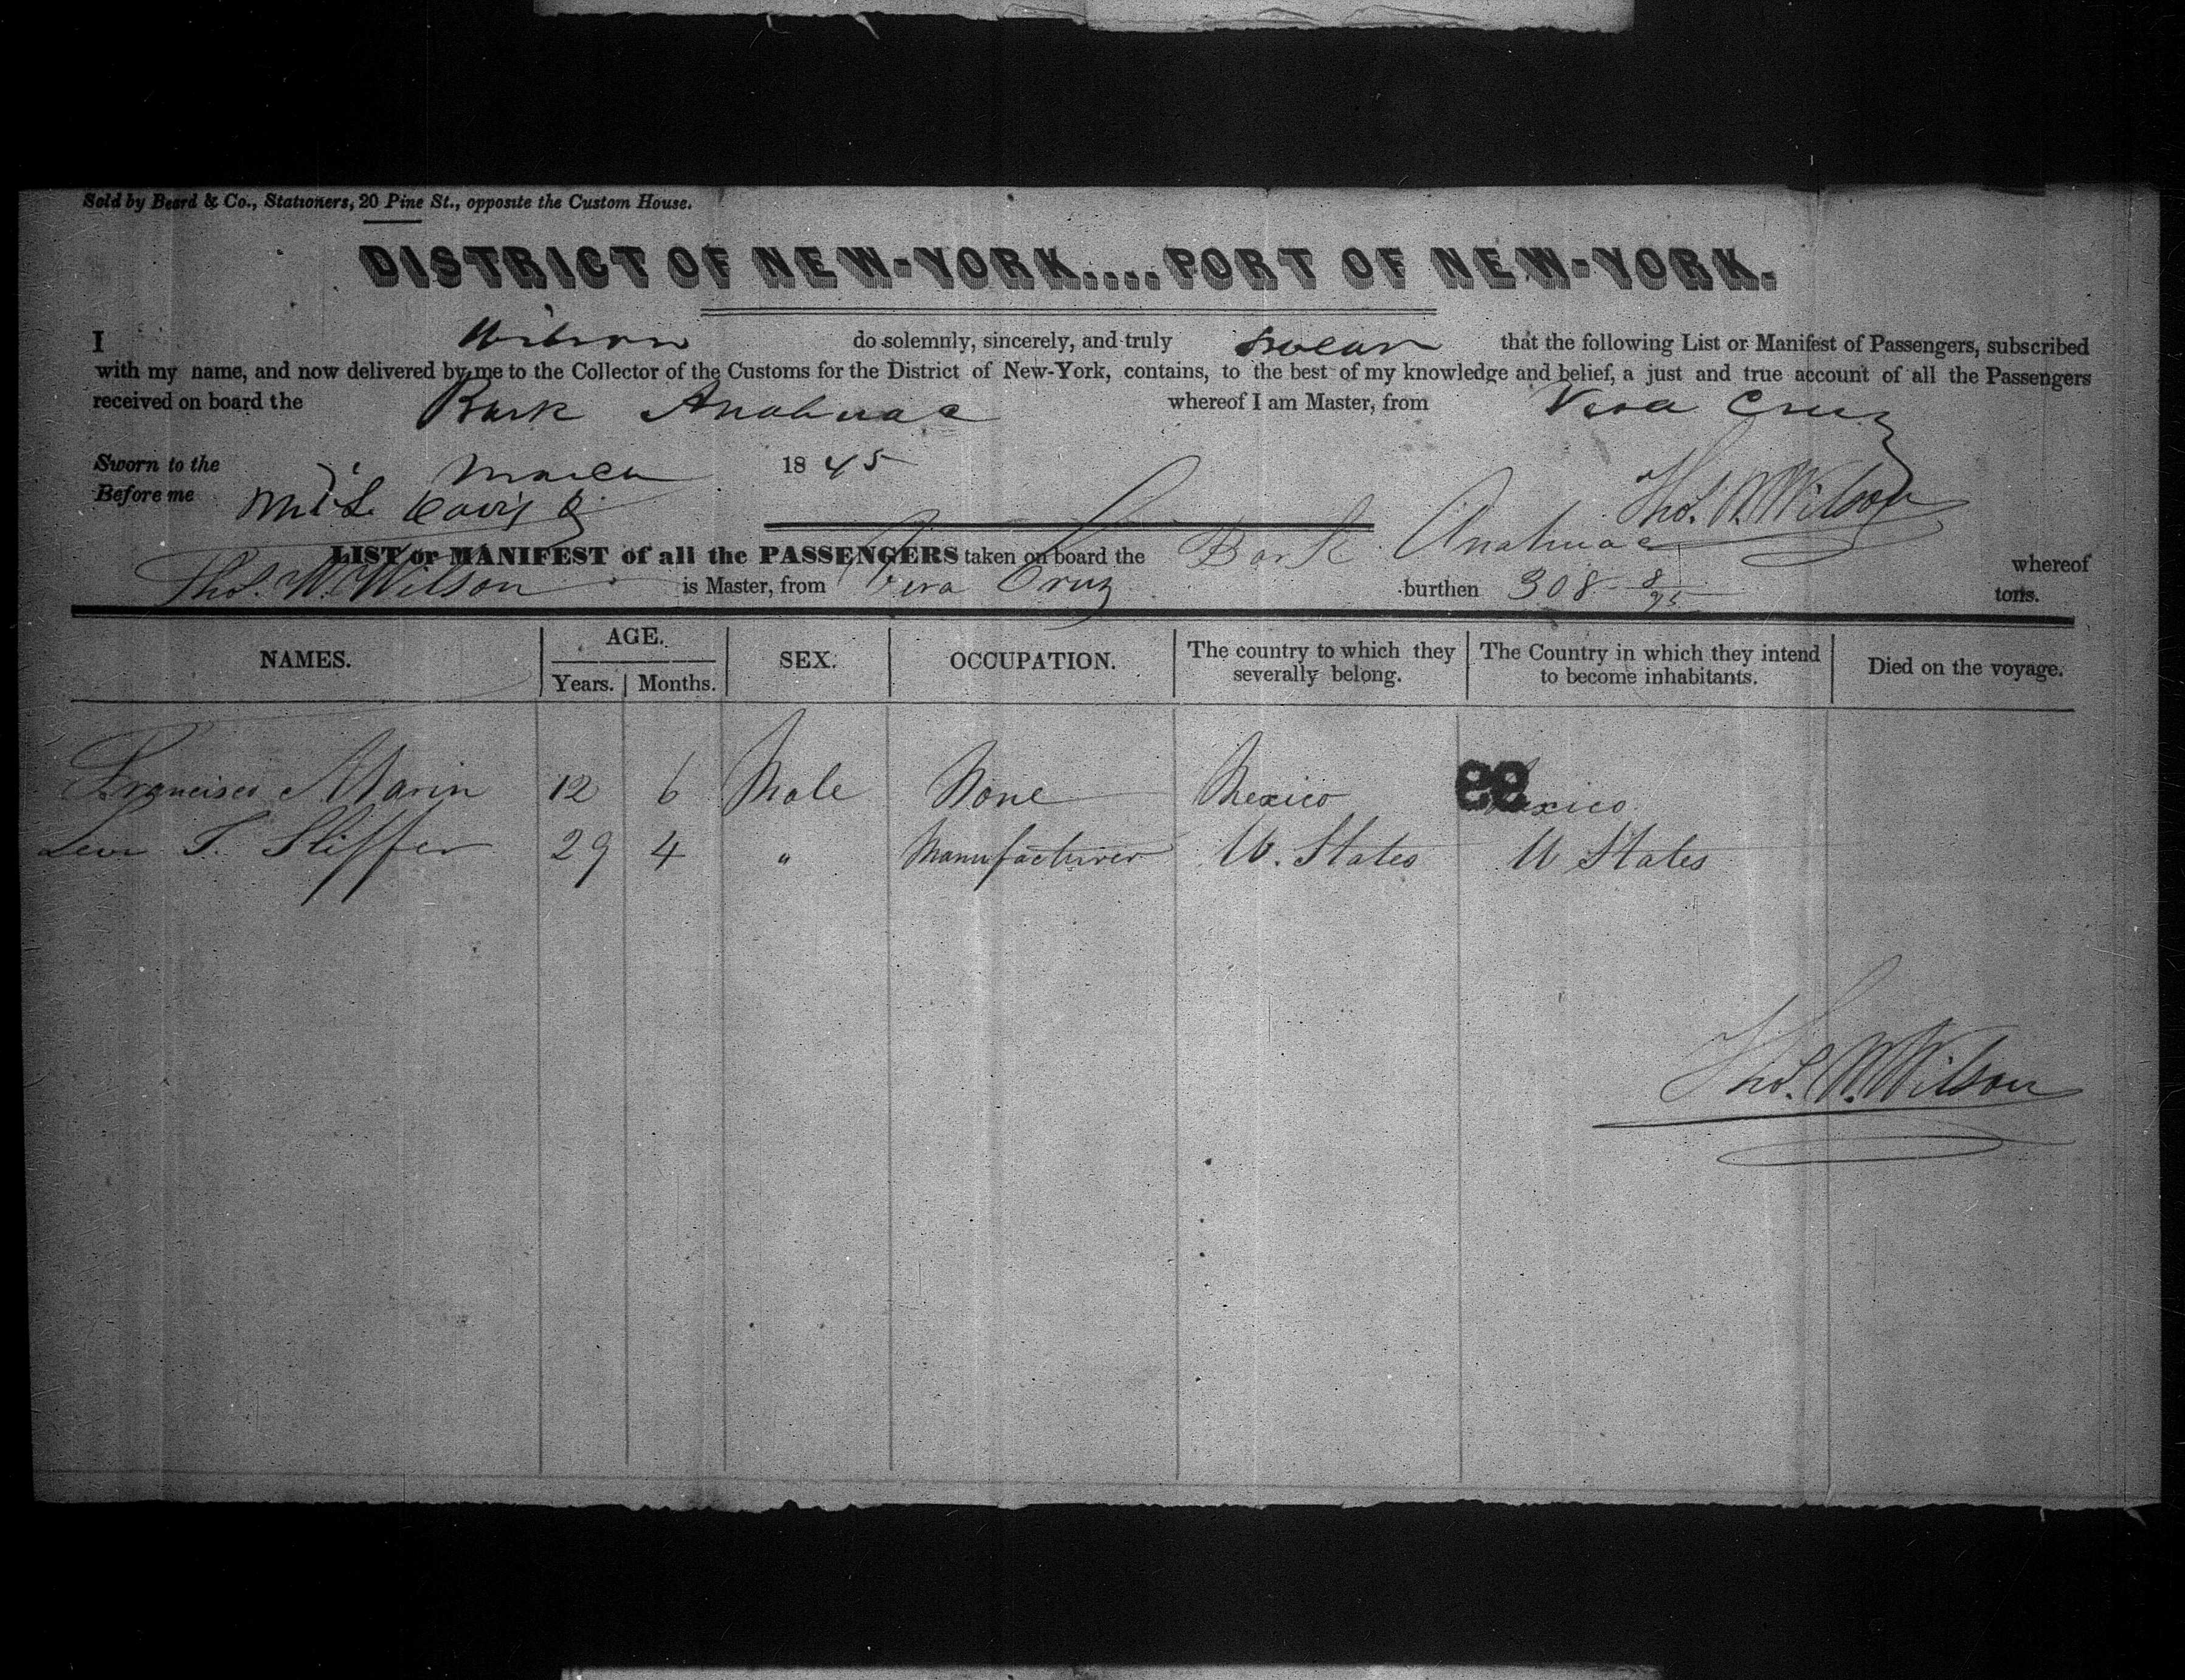 Sold by Beard & Co., Stationers, 20 Pine St., opposite the Custom House.
DISTRICT OF NEW-YORK....PORT OF NEW-YORK.
I Wilson do solemnly, sincerely, and truly Swear that the following List or Manifest of Passengers, subscribed
with my name, and now delivered by me to the Collector of the Customs for the District of New-York, contains, to the best of my knowledge and belief, a just and true account of all the Passengers
received on board the Bark Anahuac whereof I am Master, from Vera Cruz
Sworn to the March 1845
Before me Thos. W. Wilson
LIST or MANIFEST of all the PASSENGERS taken on board the Bark Anahuac whereof
Thos. W. Wilson is Master, from Vera Cruz burthen 308 8/95 tons.
NAMES. AGE. Years. Months. SEX. OCCUPATION. The country to which they severally belong. The Country in which they intend to become inhabitants. Died on the voyage.
Francisco Marin 12 6 Male None Mexico Mexico
99
Levi T. Sliffer 29 4 " Manufacturer U. States U States
Thos. W. Wilson